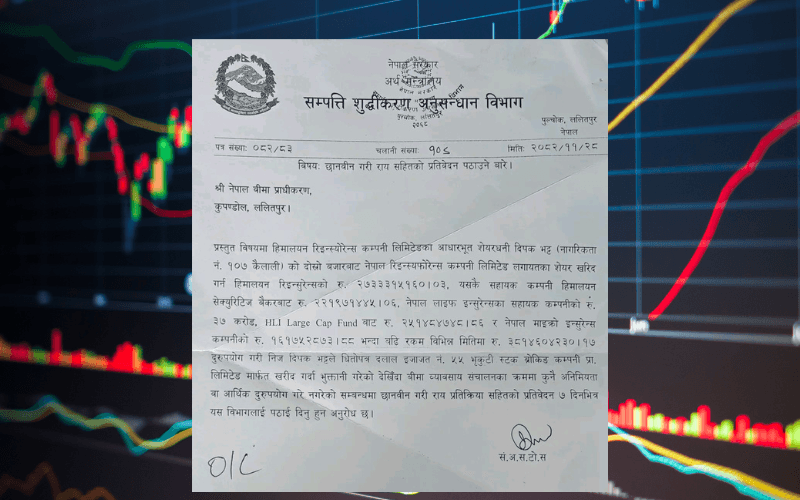 नेपाल सरकार
अर्थ मन्त्रालय
सम्पत्ति शुद्धीकरण अनुसन्धान विभाग
पुल्चोक, ललितपुर
नेपाल
पत्र संख्याः ०८२/८३ चलानी संख्याः १०६ मितिः २०८२/११/२८
विषयः छानवीन गरी राय सहितको प्रतिवेदन पठाउने बारे।
श्री नेपाल बीमा प्राधीकरण,
कुपण्डोल, ललितपुर।
प्रस्तुत विषयमा हिमालयन रिइन्स्योरेन्स कम्पनी लिमिटेडका आधारभूत शेयरधनी दिपक भट्ट (नागरिकता
नं. १०७ कैलाली) को दोस्रो बजारबाट नेपाल रिइन्स्योरेन्स कम्पनी लिमिटेड लगायतका शेयर खरिद
गर्न हिमालयन रिइन्सुरेन्सको रु. २७३३३१५१६०।०३, यसकै सहायक कम्पनी हिमालयन
सेक्युरिटिज बैंकरबाट रु. २२१९७१४४५।०६, नेपाल लाइफ इन्सुरेन्सका सहायक कम्पनीको रु.
३७ करोड, HLI Large Cap Fund बाट रु. २५१४८४७४८।८६ र नेपाल माइक्रो इन्सुरेन्स
कम्पनीको रु. १६१७५२८७३।८८ भन्दा बढि रकम विभिन्न मितिमा रु. ३८१४६०४२३०।१७
दुरुपयोग गरी निज दिपक भट्टले धितोपत्र दलाल इजाजत नं. ५५ भृकुटी स्टक ब्रोकिङ कम्पनी प्रा.
लिमिटेड मार्फत खरीद गर्दा भुक्तानी गरेको देखिँदा बीमा व्यावसाय संचालनका क्रममा कुनै अनिमियता
वा आर्थिक दुरुपयोग गरे नगरेको सम्वन्धमा छानवीन गरी राय प्रतिक्रिया सहितको प्रतिवेदन ७ दिनभित्र
यस विभागलाई पठाई दिनु हुन अनुरोध छ।
O/C
सं.अ.स.टो.स